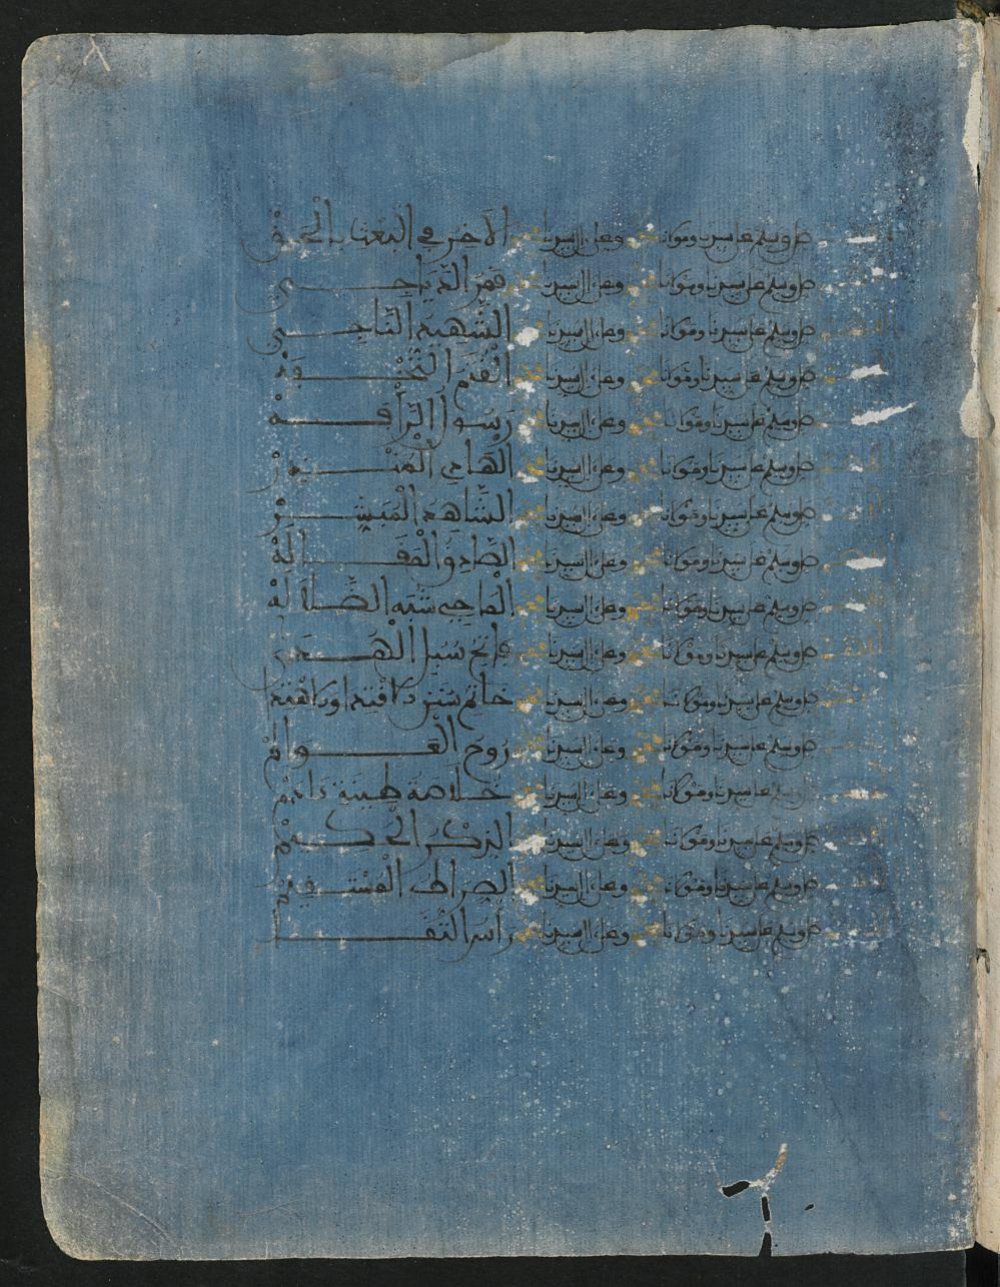 صل وسلم على سيدنا ومولانا وعلى ءال سيدنا الآخر في البعث بالحق
صل وسلم على سيدنا ومولانا وعلى ءال سيدنا قمر الدياجي
صل وسلم على سيدنا ومولانا وعلى ءال سيدنا الشهيد الناجي
صل وسلم على سيدنا ومولانا وعلى ءال سيدنا القثم التحفة
صل وسلم على سيدنا ومولانا وعلى ءال سيدنا رسول الرأفة
صل وسلم على سيدنا ومولانا وعلى ءال سيدنا الهادي
صل وسلم على سيدنا ومولانا وعلى ءال سيدنا الشاهد المبشر
صل وسلم على سيدنا ومولانا وعلى ءال سيدنا الصادق المقالة
صل وسلم على سيدنا ومولانا وعلى ءال سيدنا الماحي شبه الضلالة
صل وسلم على سيدنا ومولانا وعلى ءال سيدنا فاتح سبيل الهدى
صل وسلم على سيدنا ومولانا وعلى ءال سيدنا خاتم
صل وسلم على سيدنا ومولانا وعلى ءال سيدنا روح العوالم
صل وسلم على سيدنا ومولانا وعلى ءال سيدنا خلاصة طينة ءادم
صل وسلم على سيدنا ومولانا وعلى ءال سيدنا الذكر الحكيم
صل وسلم على سيدنا ومولانا وعلى ءال سيدنا الصراط المستقيم
صل وسلم على سيدنا ومولانا وعلى ءال سيدنا رأس